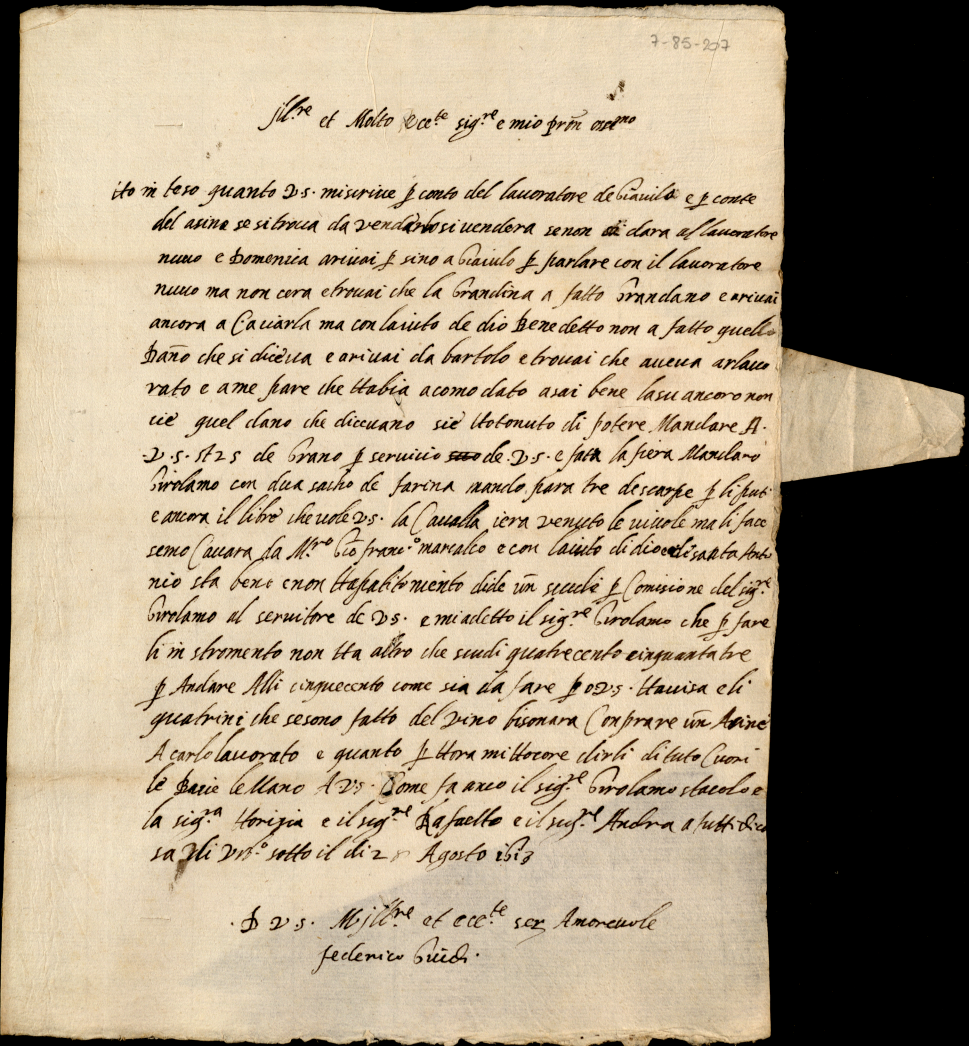 7-85-207
Ill.re et Molto ecc.te sig.re e mio pron oss.mo
Ho in teso quanto V.S. miscrive p conto del lavoratore de Giaiulo e p conte
del asino se si trova da vendarlo si vendera se non si dara al lavoratore
nuvo e Domenica arivai p sino a Giaiulo p parlare con il lavoratore
nuvo ma non cera e trovai che la Grandina a fatto Grandano e arivai
ancora a Caciarla ma con laiuto de dio Benedetto non a fatto quello
Dano che si diceva e arivai da bartolo e trovai che aveva arlavo
rato e a me pare che Habia acomodato asai bene lasu ancoro non
cie quel dano che dicevano sie Hotonuto di potere Mandare A.
V.S. St 25 de Grano p servicio de V.S. e fata la fiera Mandaro
Girolamo con dua sacho de farina mando para tre descarpe p li puti
e ancora il libro che vole V.S. la Cavalla iera venuto le vivole ma li face
semo Cavara da M.ro Gio franc.o marcalco e con laiuto di dio e di santa Anto
nio sta bene e non Ha patito niento dide un scudo p Comisione del sig.re
Girolamo al servitore de V.S. e mi a detto il sig.re Girolamo che p fare
li in stromento non Ha altro che scudi quatrecento cinquanta tre
p Andare Alli cinquecento come sia da fare p o V.S. Havisa e li
quatrini che se sono fatto del vino bisonara Conprare un Asino
A carlo lavorato e quanto p Hora mi Hocore dirli di tuto Cuori
le Bacie le Mano A V.S. Come fa anco il sig.re Girolamo stacolo e
la sig.ra Horizia e il sig.re Rafaello e il sig.re Andra a tutti di ca
sa Di Urb.o sotto il di 28 Agosto 1613
D V.S. M Ill.re et ecc.te ser Amorevole
federico Guidi